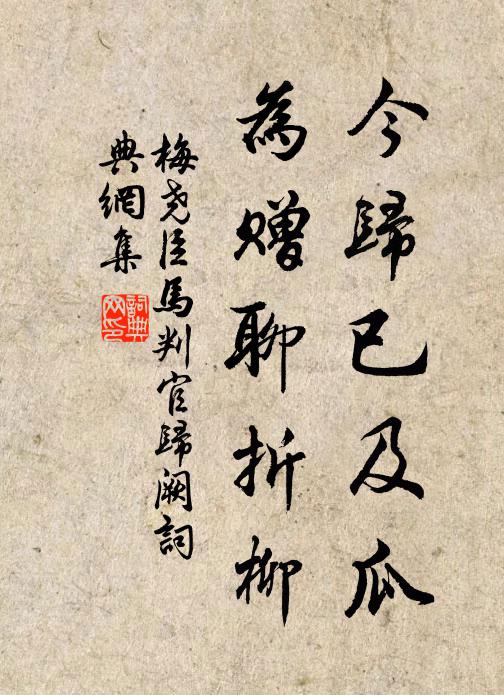 今歸已及瓜
為贈聊折柳
梅堯臣馬判官歸闕詞
典網集
詞典网印